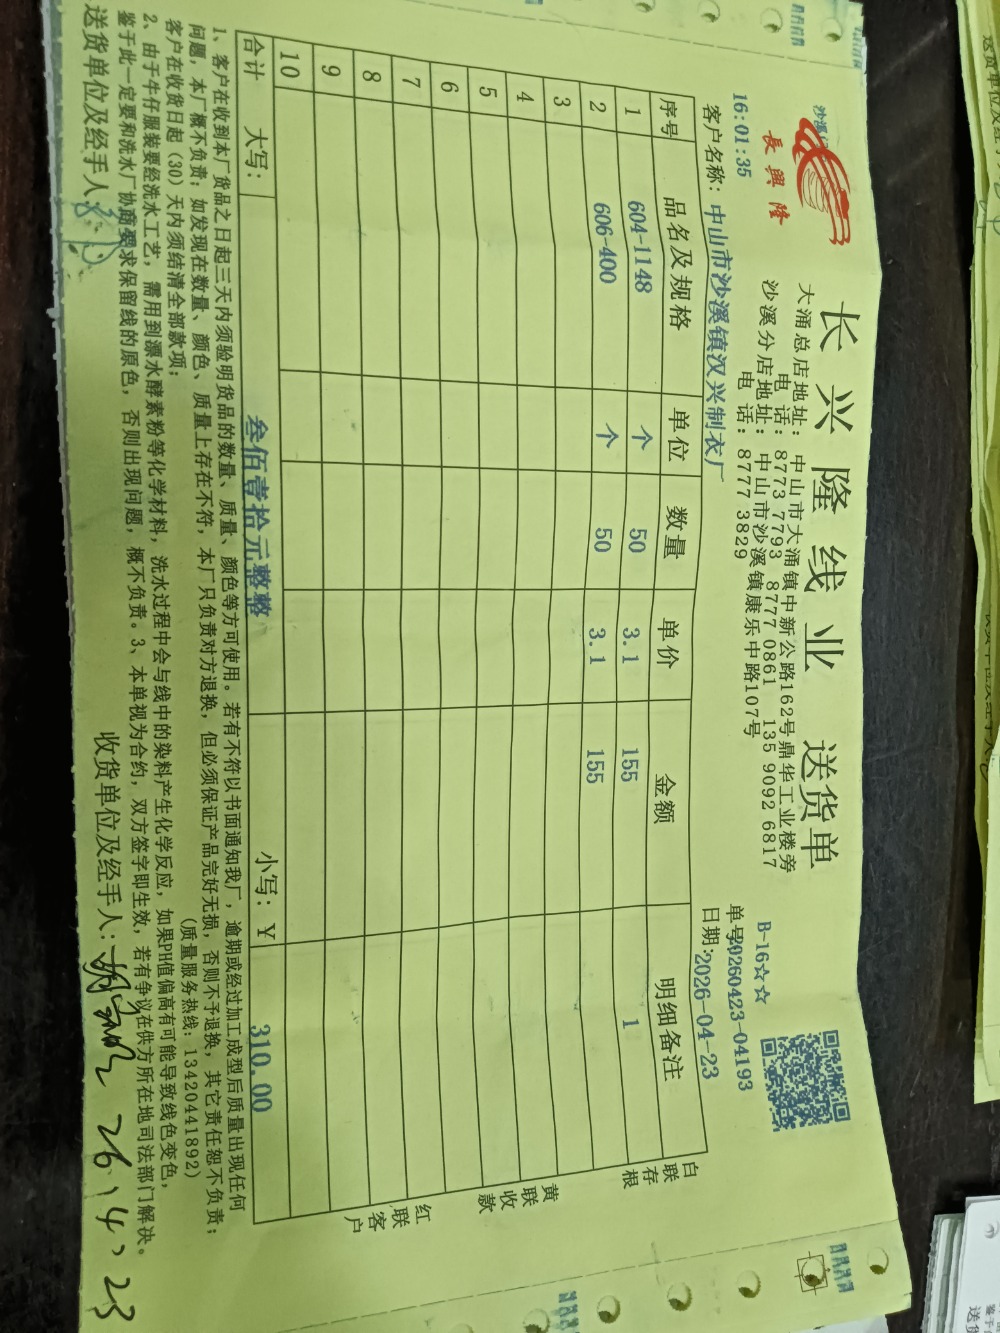 長興隆
长兴隆线业 送货单
大涌总店地址：中山市大涌镇中新公路162号鼎华工业楼旁
电话：8773 7793 8777 0861 135 9092 6817
沙溪分店地址：中山市沙溪镇康乐中路107号
电话：8777 3829
B-16☆☆
16:01:35
单号:20260423-04193
客户名称：中山市沙溪镇汉兴制衣厂
日期:2026-04-23
序号 品名及规格 单位 数量 单价 金额 明细备注
1 604-1148 个 50 3.1 155 1
2 606-400 个 50 3.1 155
3
4
5
6
7
8
9
10
合计 大写： 叁佰壹拾元整整 小写：￥ 310.00
白联存根
黄联收款
红联客户
1、客户在收到本厂货品之日起三天内须验明货品的数量、质量、颜色等方可使用。若有不符以书面通知我厂，逾期或经过加工成型后质量出现任何
问题，本厂概不负责；如发现在数量、颜色、质量上存在不符，本厂只负责对方退换，但必须保证产品完好无损，否则不予退换，其它责任恕不负责；
客户在收货日起（30）天内须结清全部款项； （质量服务热线：13420441892）
2、由于牛仔服装要经洗水工艺，需用到漂水酵素粉等化学材料，洗水过程中会与线中的染料产生化学反应，如果PH值偏高有可能导致线色变色，
鉴于此一定要和洗水厂协商要求保留线的原色，否则出现问题，概不负责。3、本单视为合约，双方签字即生效，若有争议在供方所在地司法部门解决。
送货单位及经手人：
收货单位及经手人： 26,4,23